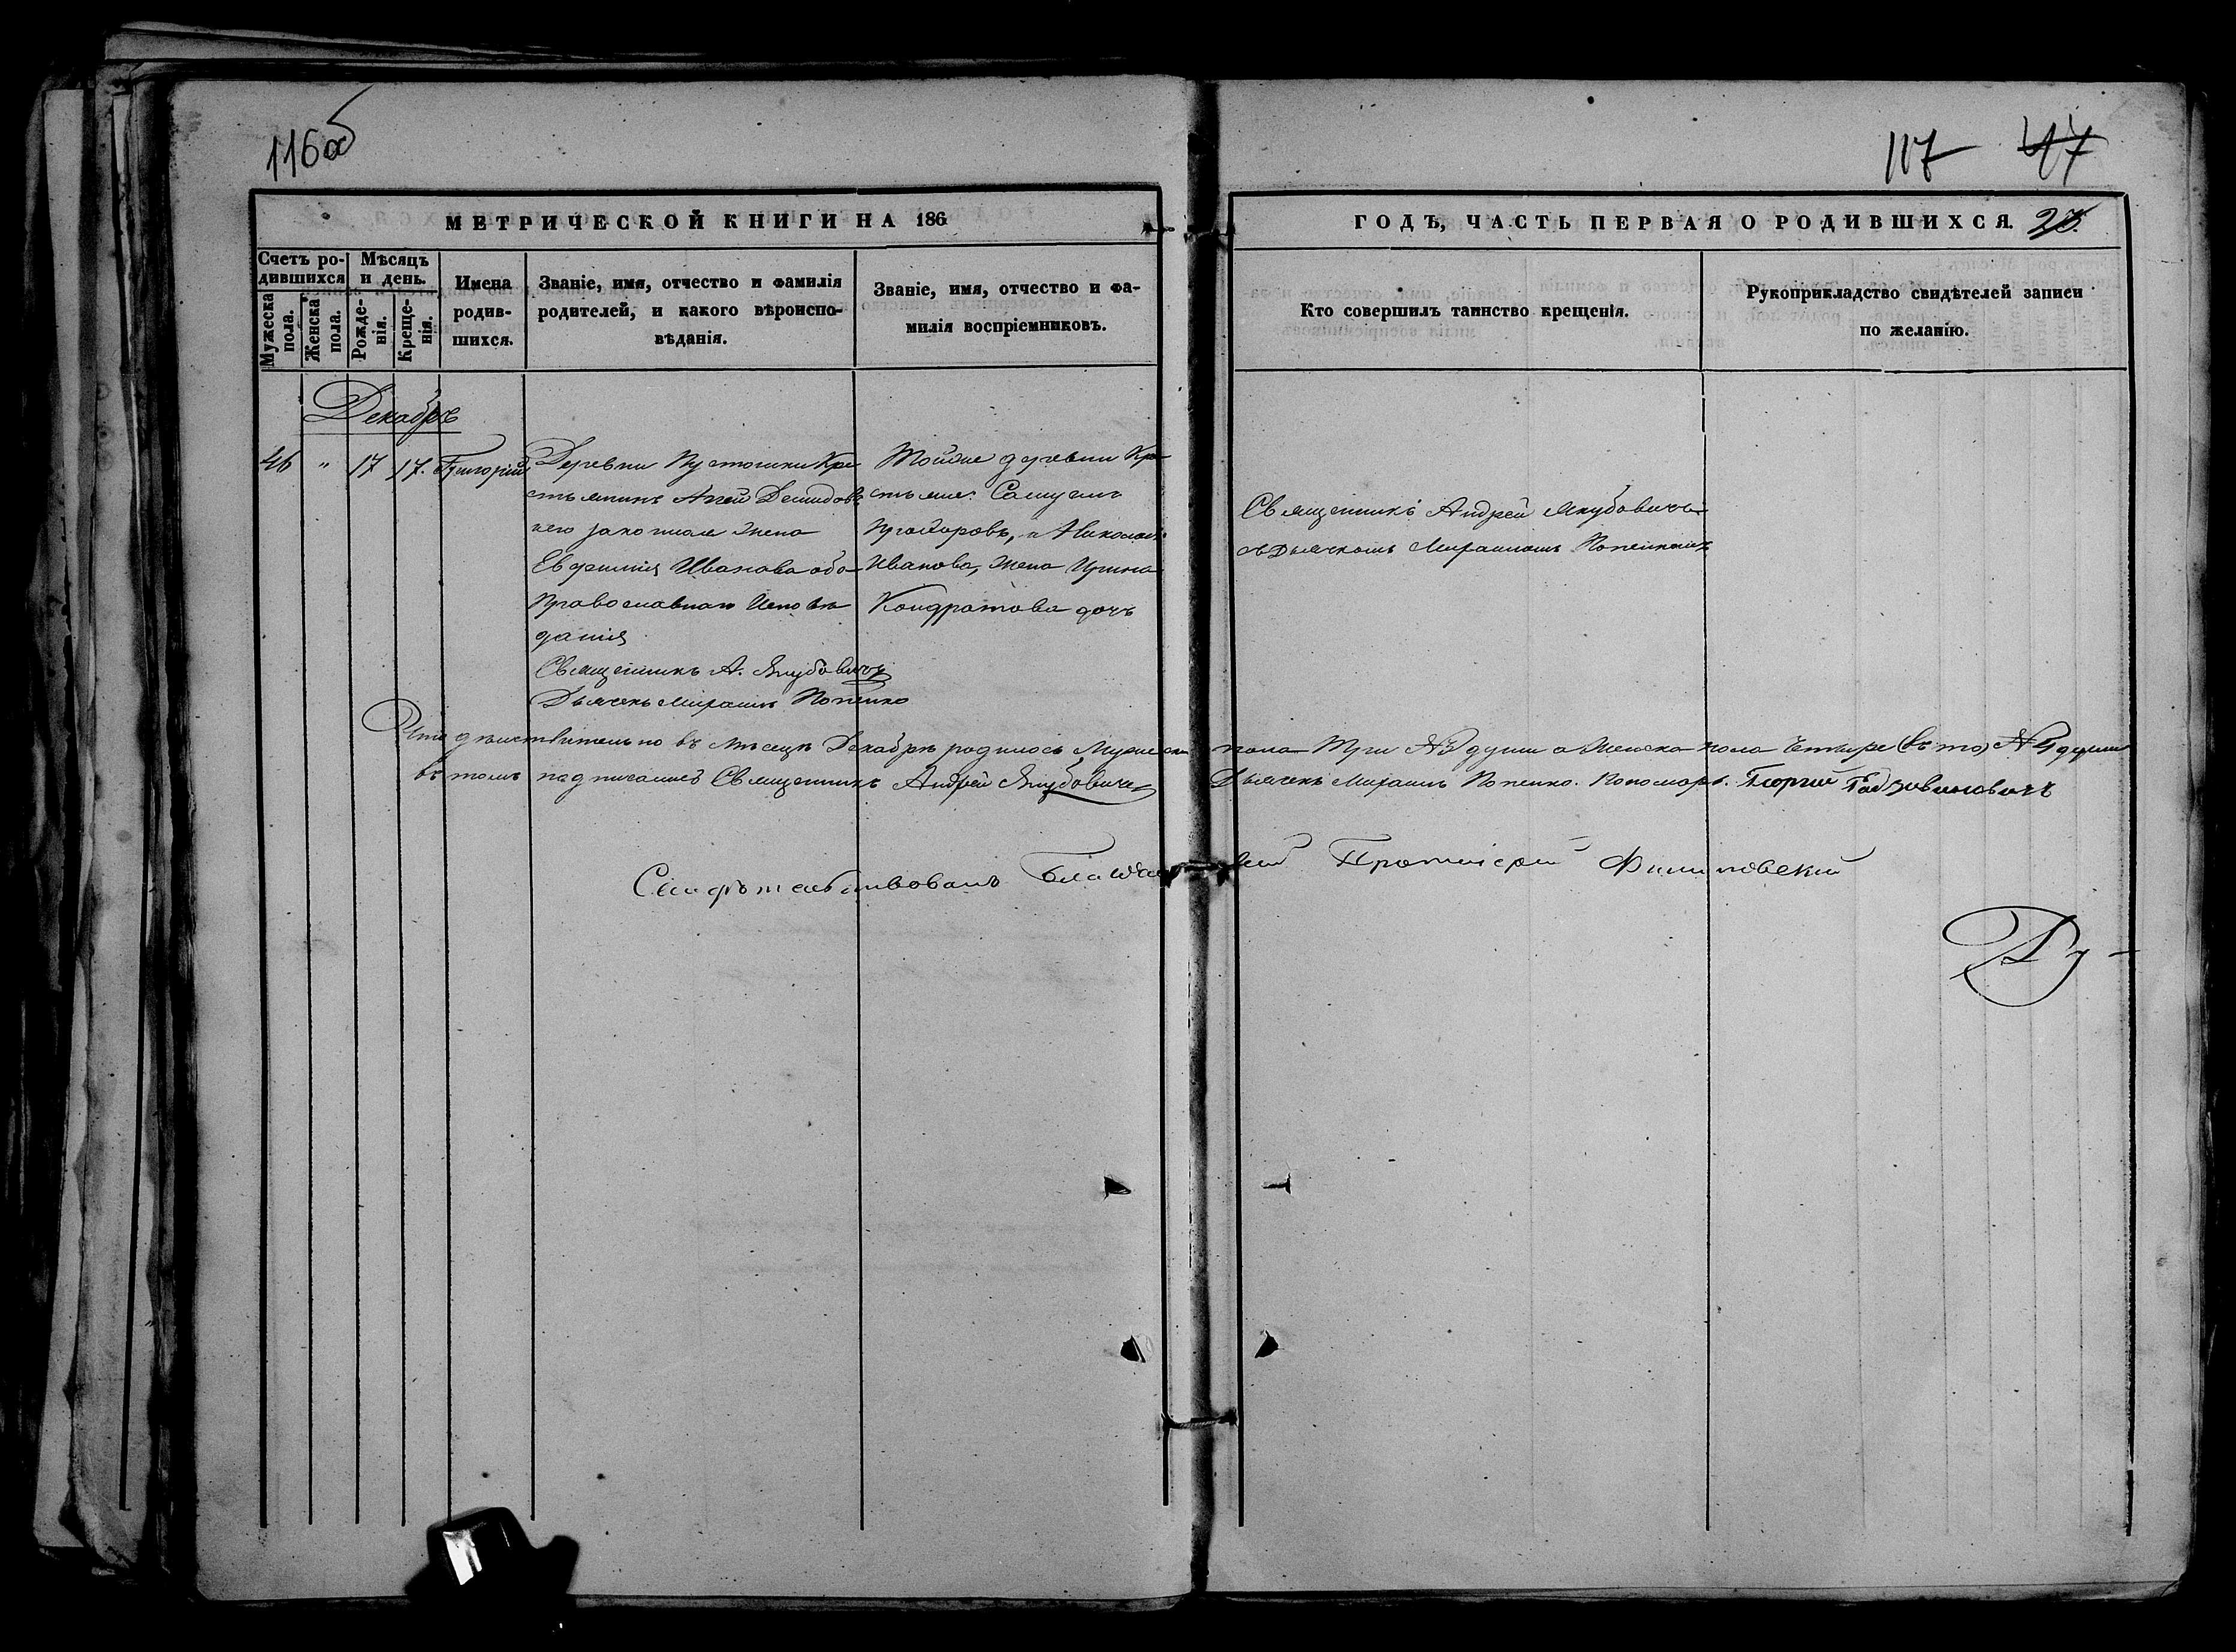 116об
117 47
МЕТРИЧЕСКОЙ КНИГИ НА 186
ГОДЪ, ЧАСТЬ ПЕРВАЯ О РОДИВШИХСЯ.
Счетъ ро-
дившихся
Мужеска
пола.
Женска
пола.
Мѣсяцъ
и день.
Рожде-
нія.
Креще-
нія.
Имена
родив-
шихся.
Званіе, имя, отчество и фамилія
родителей, и какого вѣроиспо-
вѣданія.
Званіе, имя, отчество и фа-
милія воспріемниковъ.
Кто совершилъ таинство крещенія.
Рукоприкладство свидѣтелей записи
по желанію.
Декабрь
46 " 17 17. Григорій
Деревни Пустошки Кре
стьянинъ Агей Демидовъ
его законная жена
Евфимія Иванова оба
Православнаго Исповѣ
данія
Священникъ А. Якубовичъ
Дьячекъ Миранъ Попенко
Тойже деревни Кре
стьян. Самуилъ
Прохоровъ, и Николая
Иванова, жена Ирина
Кондратова дочь
Священникъ Андрей Якубовичъ
съ Дьячкомъ Мираномъ Попенкомъ
Что дѣйствительно въ мѣсяцѣ Декабрѣ родилось Мужеска пола три №3 души а Женска пола четыре №4 души
въ томъ подписались Священникъ Андрей Якубовичъ Дьячекъ Миранъ Попенко. Пономарь. Георгій
Свидѣтельствовалъ Протоіерей Филиповскій